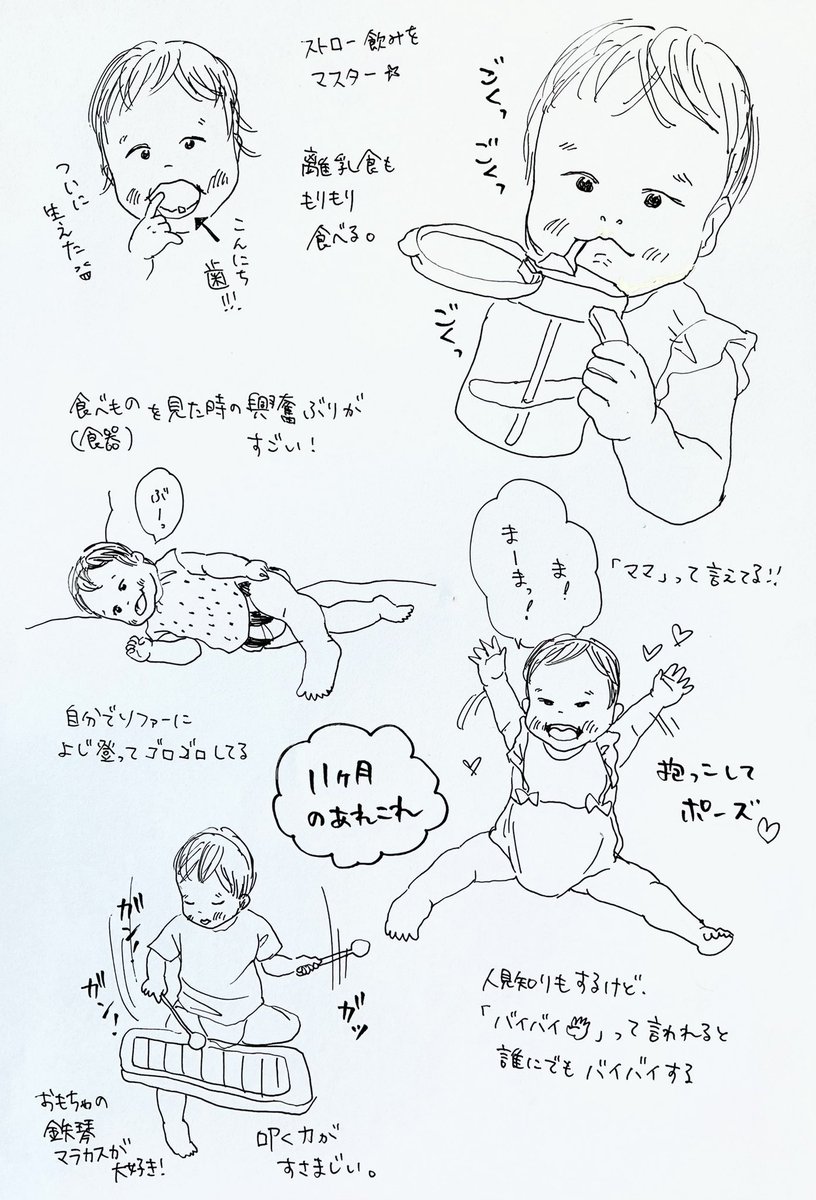 ストロー飲みを
マスター☆
離乳食も
もりもり
食べる。
ついに
生えた
こんにち
歯!!!
ごくっ
ごくっ
ごくっ
食べものを見た時の興奮ぶりが
(食器)
すごい!
ぶーっ
自分でソファーに
よじ登ってゴロゴロしてる
ま!
まーまっ!
「ママ」って言えてる!!
抱っこして
ポーズ♡
11ヶ月
のあれこれ
ガン!
ガン!
ガッ
おもちゃの
鉄琴
マラカスが
大好き!
叩く力が
すさまじい。
人見知りもするけど、
「バイバイ👋」って言われると
誰にでもバイバイする